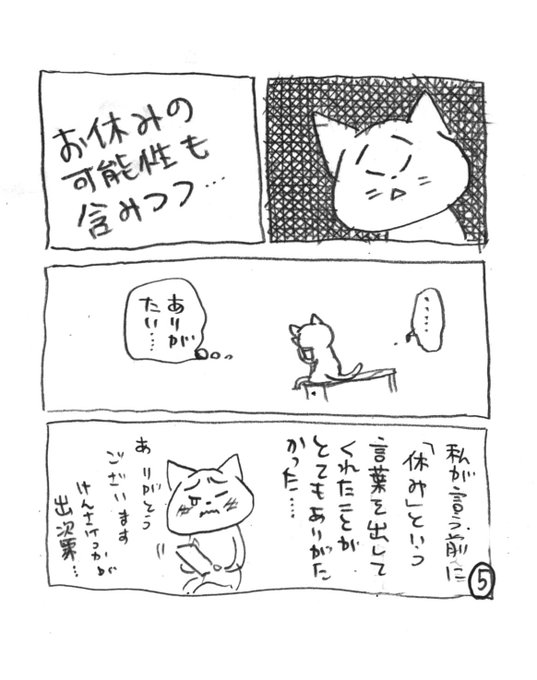 お休みの
可能性も
含みつつ…
……
ありが
たい…
私が言う前に
「休み」という
言葉を出して
くれたことが
とてもありがた
かった…
ありがとう
ございます
けんさけっかが
出次第…
5